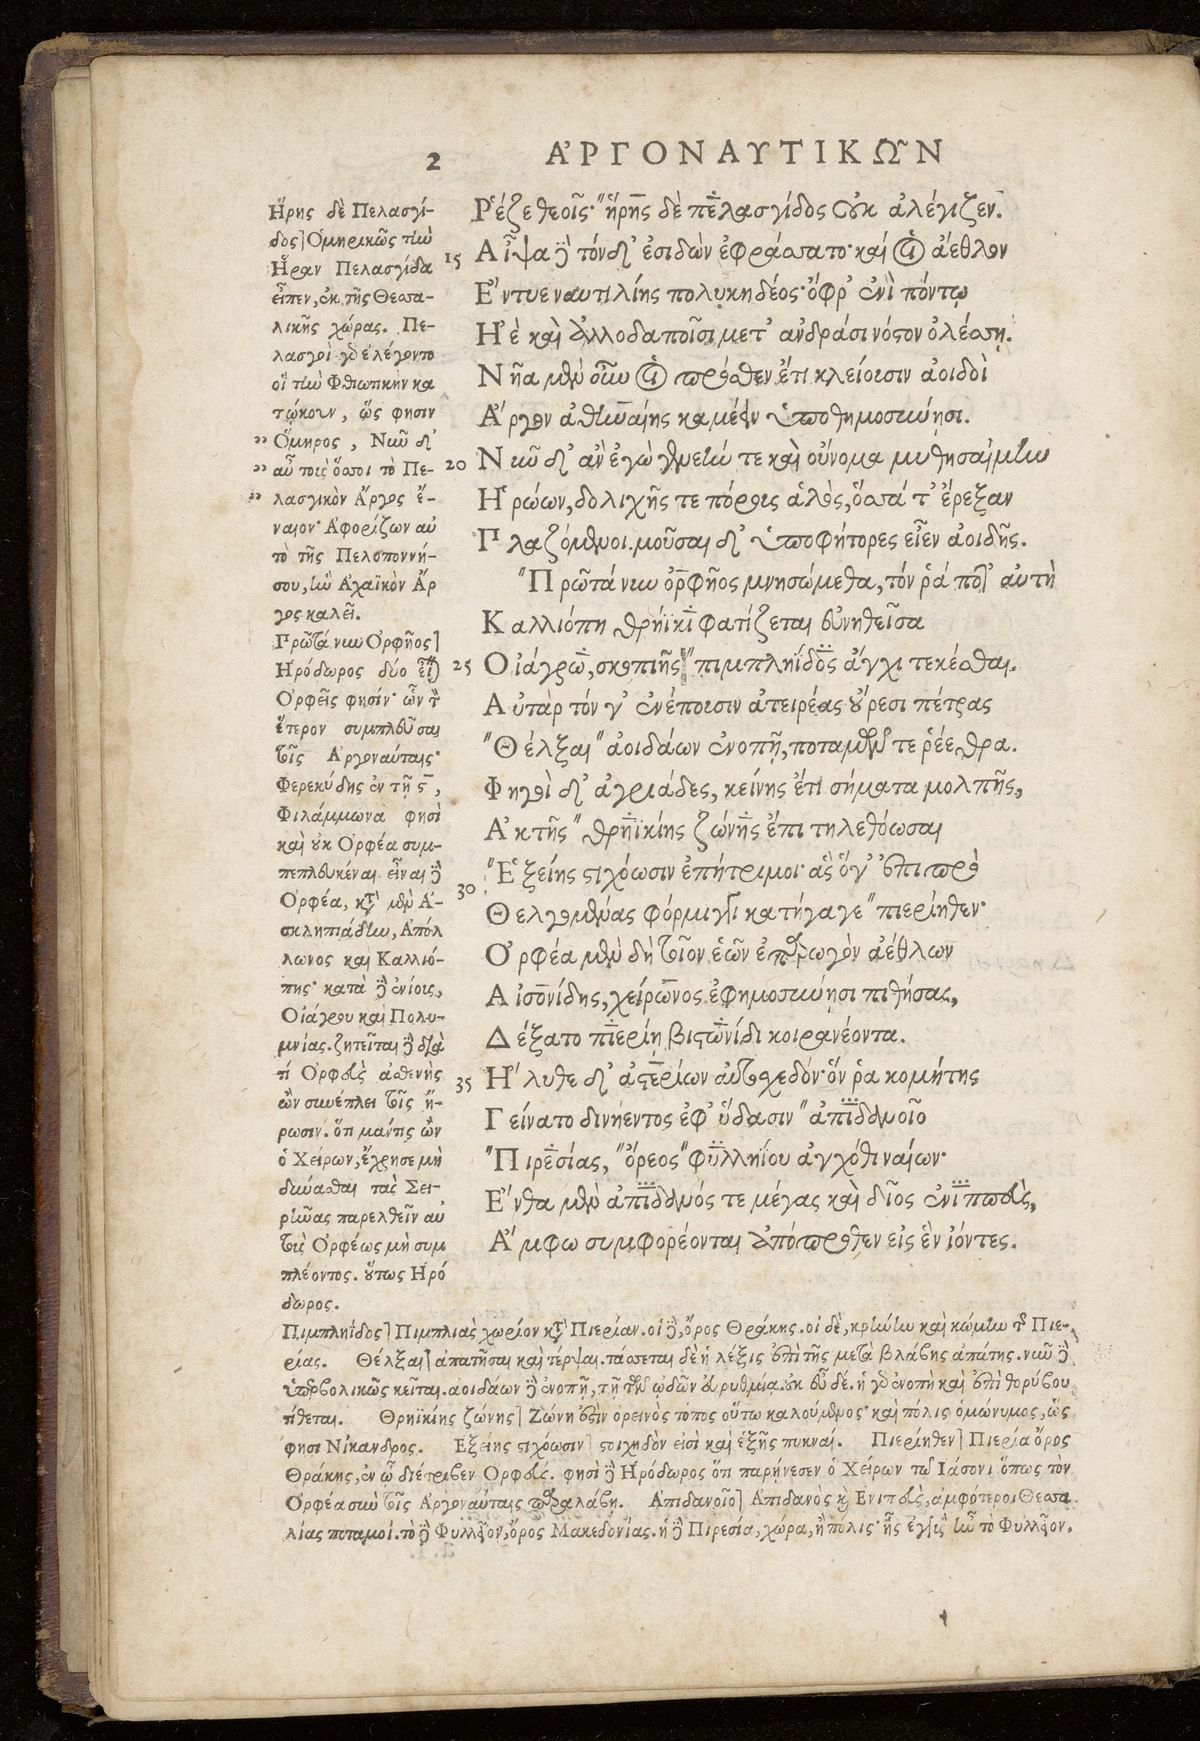 2 ἈΡΓΟΝΑΥΤΙΚΩ͂Ν
Ῥέζε θεοῖς· ἥρης δὲ πελασγίδος οὐκ ἀλέγιζεν.
15 Αἶψα δὲ τόν δ' ἐσιδὼν ἐφράσσατο· καί οἱ ἄεθλον
Ἔντυε ναυτιλίης πολυκηδέος· ὄφρ' ἐνὶ πόντῳ
Ἠὲ καὶ ἀλλοδαποῖσι μετ' ἀνδράσι νόστον ὀλέσσῃ.
Νῆα μὲν οὖν οἱ πρόσθεν ἔτι κλείουσιν ἀοιδοὶ
Ἄργον ἀθηναίης καμέειν ὑποθημοσύνῃσι.
20 Νῦν δ' ἂν ἐγὼ γενεήν τε καὶ οὔνομα μυθησαίμην
Ἡρώων, δολιχῆς τε πόρους ἁλὸς, ὅσσά τ' ἔρεξαν
Πλαζόμενοι. μοῦσαι δ' ὑποφήτορες εἶεν ἀοιδῆς.
Πρῶτά νυν ὀρφῆος μνησώμεθα, τόν ῥά ποτ' αὐτὴ
Καλλιόπη θρήϊκι φατίζεται εὐνηθεῖσα
25 Οἰάγρῳ, σκοπιῆς πιμπληΐδος ἄγχι τεκέσθαι.
Αὐτὰρ τόν γ' ἐνέπουσιν ἀτειρέας οὔρεσι πέτρας
Θέλξαι ἀοιδάων ἐνοπῇ, ποταμῶν τε ῥέεθρα.
Φηγοὶ δ' ἀγριάδες, κείνης ἔτι σήματα μολπῆς,
Ἀκτῆς θρηϊκίης ζώνης ἔπι τηλεθόωσαι
30 Ἑξείης στιχόωσιν ἐπήτριμοι· ἃς ὅγ' ἐπιπρὸ
Θελγομένας φόρμιγγι κατήγαγε πιερίηθεν·
Ὀρφέα μὲν δὴ τοῖον ἑῶν ἐπαρωγὸν ἀέθλων
Αἰσονίδης, χείρωνος ἐφημοσύνῃσι πιθήσας,
Δέξατο πιερίῃ βιστωνίδι κοιρανέοντα.
35 Ἤλυθε δ' ἀστερίων αὐτοσχεδόν· ὅν ῥα κομήτης
Γείνατο δινήεντος ἐφ' ὕδασιν ἀπιδανοῖο
Πιρεσίας, ὄρεος φυλληΐου ἀγχόθι ναίων·
Ἔνθα μὲν ἀπιδανός τε μέγας καὶ δῖος ἐνιπεὺς,
Ἄμφω συμφορέονται ἀπόπροθεν εἰς ἓν ἰόντες.
Ἥρης δὲ Πελασγί-
δος] Ὁμηρικῶς τὴν
Ἥραν Πελασγίδα
εἶπεν, ἐκ τῆς Θεσσα-
λικῆς χώρας. Πε-
λασγοὶ γὰρ ἐλέγοντο
οἱ τὴν Φθιωτικὴν κα
τῴκουν, ὥς φησιν
Ὅμηρος, Νῦν δ'
αὖ τοὺς ὅσσοι τὸ Πε-
λασγικὸν Ἄργος ἔ-
ναιον· Ἀφορίζων αὐ
τὸ τῆς Πελοποννή-
σου, ἣν Ἀχαϊκὸν Ἄρ
γος καλεῖ.
Πρῶτά νυν Ὀρφῆος]
Ἡρόδωρος δύο εἶναι
Ὀρφεῖς φησίν· ὧν τὸν
ἕτερον συμπλεῦσαι
τοῖς Ἀργοναύταις·
Φερεκύδης ἐν τῇ ϛ,
Φιλάμμωνα φησὶ
καὶ οὐκ Ὀρφέα συμ-
πεπλευκέναι. εἶναι δὲ
Ὀρφέα, κατὰ μὲν Ἀ-
σκληπιάδην, Ἀπόλ
λωνος καὶ Καλλιό-
πης· κατὰ δὲ ἐνίους,
Οἰάγρου καὶ Πολυ-
μνίας. ζητεῖται δὲ διὰ
τί Ὀρφεὺς ἀσθενὴς
ὢν συνέπλει τοῖς ἥ-
ρωσιν. ὅτι μάντις ὢν
ὁ Χείρων, ἔχρησε μὴ
δύνασθαι τὰς Σει-
ρῆνας παρελθεῖν αὐ
τοὺς Ὀρφέως μὴ συμ
πλέοντος. οὕτως Ἡρό
δωρος.
Πιμπληΐδος] Πιμπλιὰς χωρίον κατὰ Πιερίαν. οἱ δὲ, ὄρος Θράκης. οἱ δὲ, κρήνην καὶ κώμην τῆς Πιε-
ρίας. Θέλξαι] ἀπατῆσαι καὶ τέρψαι. τάσσεται δὲ ἡ λέξις ἐπὶ τῆς μετὰ βλάβης ἀπάτης. νῦν δὲ
ὑπερβολικῶς κεῖται. ἀοιδάων δὲ ἐνοπῇ, τῇ τῶν ᾠδῶν εὐρυθμίᾳ. οὐκ εὖ δέ. ἡ γὰρ ἐνοπὴ καὶ ἐπὶ θορύβου
τίθεται. Θρηϊκίης ζώνης] Ζώνη ἐστὶν ὀρεινὸς τόπος οὕτω καλούμενος· καὶ πόλις ὁμώνυμος, ὥς
φησι Νίκανδρος. Ἑξείης στιχόωσιν] στοιχηδὸν εἰσὶ καὶ ἑξῆς πυκναί. Πιερίηθεν] Πιερία ὄρος
Θράκης, ἐν ᾧ διέτριβεν Ὀρφεύς. φησὶ δὲ Ἡρόδωρος ὅτι παρῄνεσεν ὁ Χείρων τῷ Ἰάσονι ὅπως τὸν
Ὀρφέα σὺν τοῖς Ἀργοναύταις παραλάβῃ. Ἀπιδανοῖο] Ἀπιδανὸς καὶ Ἐνιπεὺς, ἀμφότεροι Θεσσα
λίας ποταμοί. τὸ δὲ Φυλλῇον, ὄρος Μακεδονίας. ἡ δὲ Πιρεσία, χώρα, ἢ πόλις· ἧς ἐγγὺς ἦν τὸ Φυλλῇον.